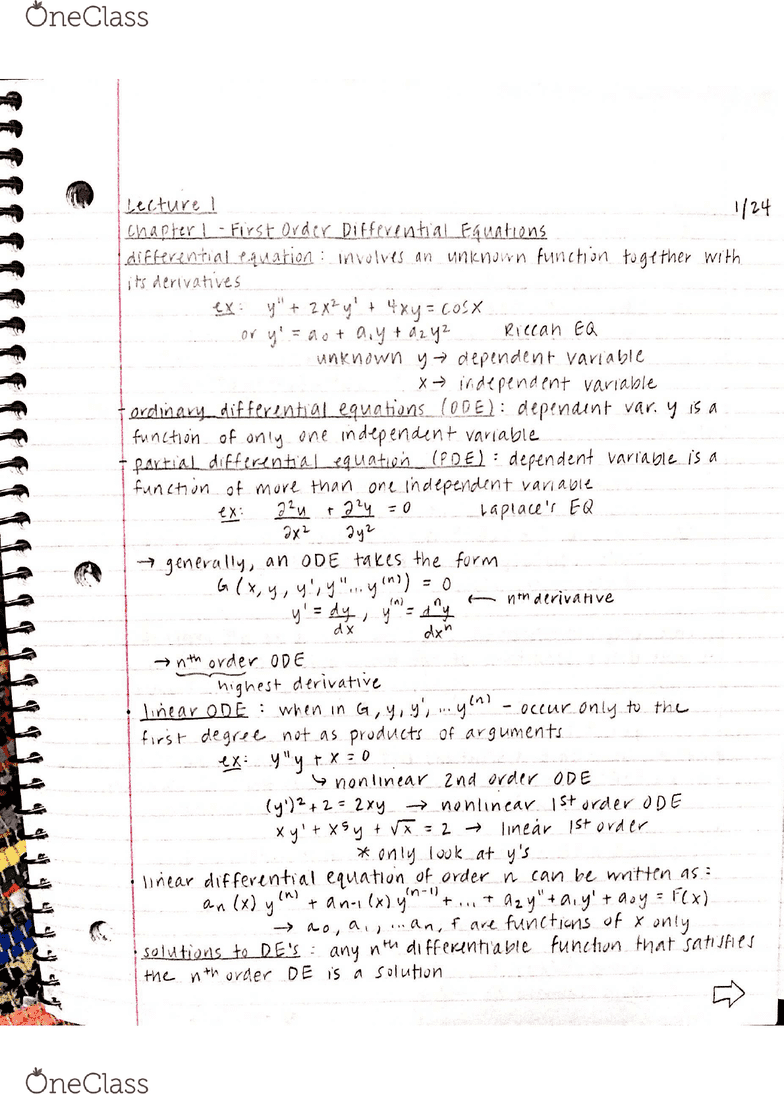 OneClass
Lecture 1 1/24
Chapter 1 - First Order Differential Equations
differential equation: involves an unknown function together with
its derivatives
ex: y" + 2x²y' + 4xy = cosx
or y' = a₀ + a₁y + a₂y² Riccan EQ
unknown y → dependent variable
x → independent variable
- ordinary differential equations (ODE): dependent var. y is a
function of only one independent variable
- partial differential equation (PDE): dependent variable is a
function of more than one independent variable
ex: ∂²u/∂x² + ∂²y/∂y² = 0 Laplace's EQ
→ generally, an ODE takes the form
G(x, y, y', y"... y⁽ⁿ⁾) = 0
y' = dy/dx, y⁽ⁿ⁾ = dⁿy/dxⁿ ← nth derivative
→ nth order ODE
highest derivative
• linear ODE: when in G, y, y', ... y⁽ⁿ⁾ - occur only to the
first degree not as products of arguments
ex: y"y + x = 0
↳ nonlinear 2nd order ODE
(y')² + 2 = 2xy → nonlinear 1st order ODE
xy' + x⁵y + √x = 2 → linear 1st order
* only look at y's
• linear differential equation of order n can be written as:
aₙ(x) y⁽ⁿ⁾ + aₙ₋₁(x) y⁽ⁿ⁻¹⁾ + ... + a₂y" + a₁y' + a₀y = F(x)
→ a₀, a₁, ... aₙ, F are functions of x only
• solutions to DE's: any nth differentiable function that satisfies
the nth order DE is a solution
⇨
OneClass